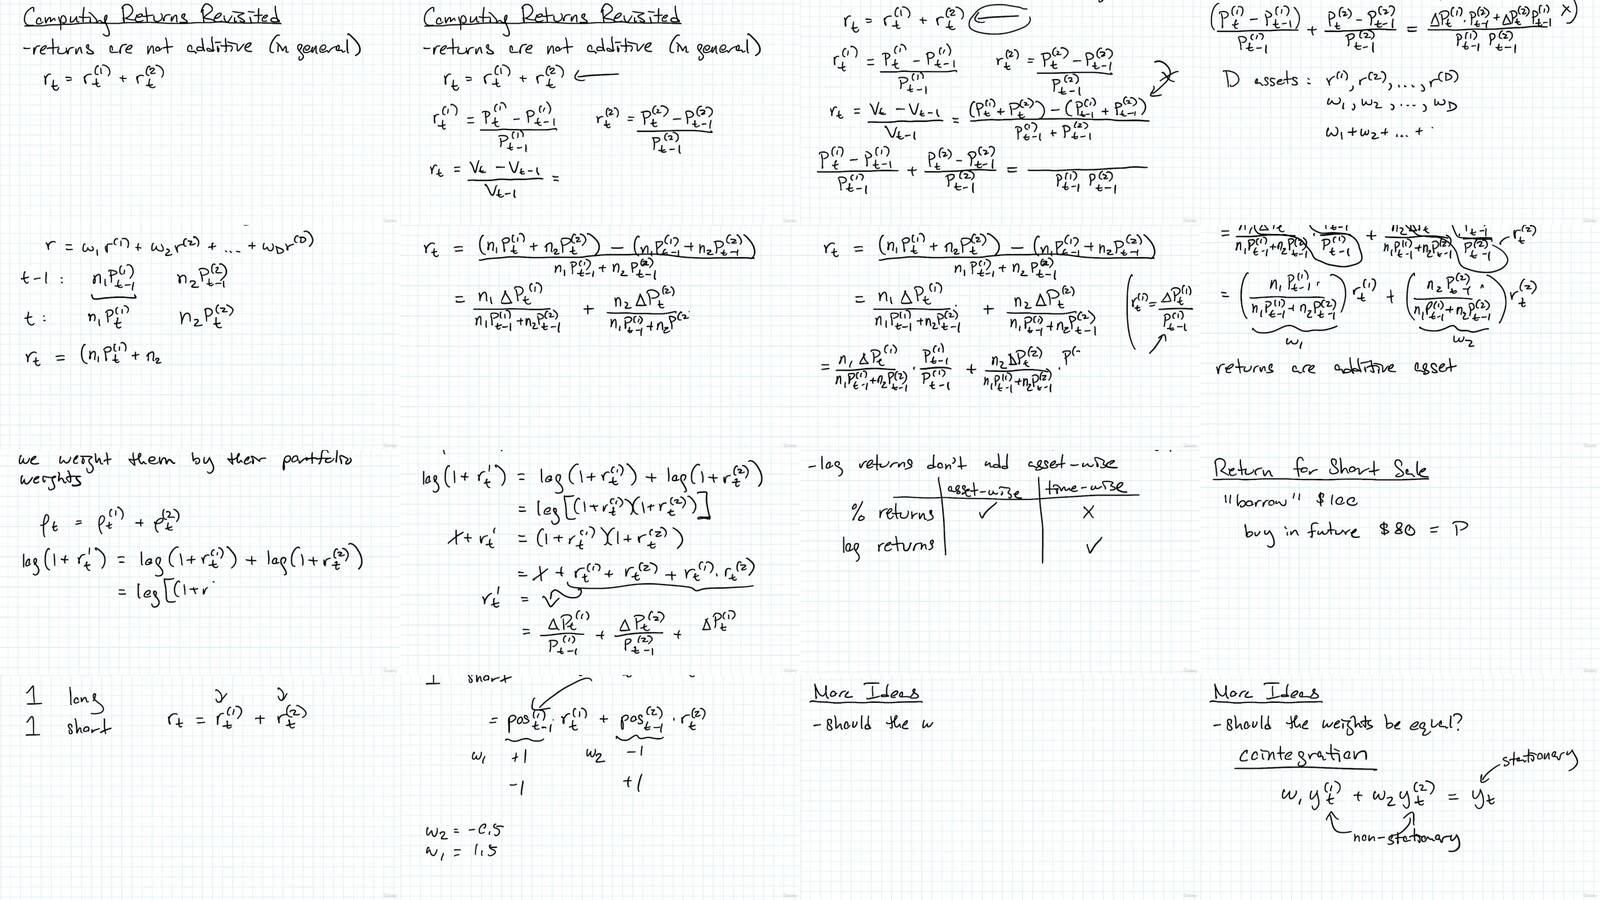 Computing Returns Revisited
-returns are not additive (in general)
r_t = r_t^(1) + r_t^(2)
Computing Returns Revisited
-returns are not additive (in general)
r_t = r_t^(1) + r_t^(2) ←
r_t^(1) = (P_t^(1) - P_{t-1}^(1)) / P_{t-1}^(1)   r_t^(2) = (P_t^(2) - P_{t-1}^(2)) / P_{t-1}^(2)
r_t = (V_t - V_{t-1}) / V_{t-1} =
r_t = r_t^(1) + r_t^(2) ←
r_t^(1) = (P_t^(1) - P_{t-1}^(1)) / P_{t-1}^(1)   r_t^(2) = (P_t^(2) - P_{t-1}^(2)) / P_{t-1}^(2)
r_t = (V_t - V_{t-1}) / V_{t-1} = ((P_t^(1) + P_t^(2)) - (P_{t-1}^(1) + P_{t-1}^(2))) / (P_{t-1}^(1) + P_{t-1}^(2))
(P_t^(1) - P_{t-1}^(1)) / P_{t-1}^(1) + (P_t^(2) - P_{t-1}^(2)) / P_{t-1}^(2) = / P_{t-1}^(1) P_{t-1}^(2)
(P_t^(1) - P_{t-1}^(1)) / P_{t-1}^(1) + (P_t^(2) - P_{t-1}^(2)) / P_{t-1}^(2) = (ΔP_t^(1) · P_{t-1}^(2) + ΔP_t^(2) P_{t-1}^(1)) / (P_{t-1}^(1) P_{t-1}^(2)) X
D assets: r^(1), r^(2), ..., r^(D)
w_1, w_2, ..., w_D
w_1 + w_2 + ... +
r = w_1 r^(1) + w_2 r^(2) + ... + w_D r^(D)
t-1: n_1 P_{t-1}^(1)   n_2 P_{t-1}^(2)
t: n_1 P_t^(1)   n_2 P_t^(2)
r_t = (n_1 P_t^(1) + n_2
r_t = ((n_1 P_t^(1) + n_2 P_t^(2)) - (n_1 P_{t-1}^(1) + n_2 P_{t-1}^(2))) / (n_1 P_{t-1}^(1) + n_2 P_{t-1}^(2))
= n_1 ΔP_t^(1) / (n_1 P_{t-1}^(1) + n_2 P_{t-1}^(2)) + n_2 ΔP_t^(2) / (n_1 P_{t-1}^(1) + n_2 P^(2
r_t = ((n_1 P_t^(1) + n_2 P_t^(2)) - (n_1 P_{t-1}^(1) + n_2 P_{t-1}^(2))) / (n_1 P_{t-1}^(1) + n_2 P_{t-1}^(2))
= n_1 ΔP_t^(1) / (n_1 P_{t-1}^(1) + n_2 P_{t-1}^(2)) + n_2 ΔP_t^(2) / (n_1 P_{t-1}^(1) + n_2 P_{t-1}^(2))   (r_t^(1) = ΔP_t^(1) / P_{t-1}^(1)
= n_1 ΔP_t^(1) / (n_1 P_{t-1}^(1) + n_2 P_{t-1}^(2)) · P_{t-1}^(1) / P_{t-1}^(1) + n_2 ΔP_t^(2) / (n_1 P_{t-1}^(1) + n_2 P_{t-1}^(2)) · P(
= / (n_1 P_{t-1}^(1) + n_2 P_{t-1}^(2)) · / P_{t-1}^(1) + / (n_1 P_{t-1}^(1) + n_2 P_{t-1}^(2)) · / P_{t-1}^(2) r_t^(2)
= (n_1 P_{t-1}^(1) / (n_1 P_{t-1}^(1) + n_2 P_{t-1}^(2))) r_t^(1) + (n_2 P_{t-1}^(2) / (n_1 P_{t-1}^(1) + n_2 P_{t-1}^(2))) r_t^(2)
w_1   w_2
returns are additive asset
we weight them by their portfolio
weights
ρ_t = ρ_t^(1) + ρ_t^(2)
log(1+r_t') = log(1+r_t^(1)) + log(1+r_t^(2))
= log[(1+r
log(1+r_t') = log(1+r_t^(1)) + log(1+r_t^(2))
= log[(1+r_t^(1))(1+r_t^(2))]
1+r_t' = (1+r_t^(1))(1+r_t^(2))
= 1 + r_t^(1) + r_t^(2) + r_t^(1) · r_t^(2)
r_t' =
= ΔP_t^(1) / P_{t-1}^(1) + ΔP_t^(2) / P_{t-1}^(2) + ΔP_t^(1)
-log returns don't add asset-wise
asset-wise | time-wise
% returns ✓ X
log returns ✓
Return for Short Sale
"borrow" $100
buy in future $80 = P
1 long
1 short   r_t = r_t^(1) + r_t^(2)
1 short
= pos_{t-1}^(1) · r_t^(1) + pos_{t-1}^(2) · r_t^(2)
w_1 +1   w_2 -1
-1   +1
w_2 = -0.5
w_1 = 1.5
More Ideas
-should the w
More Ideas
-should the weights be equal?
cointegration
stationary
w_1 y_t^(1) + w_2 y_t^(2) = y_t
non-stationary